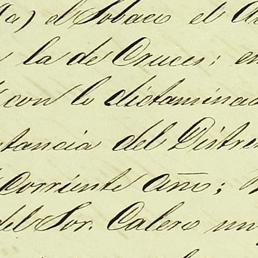 el Tobaco el
la de Cruces: en
con lo dictaminado
tancia del Distri
corriente año;
del Sor. Calero un